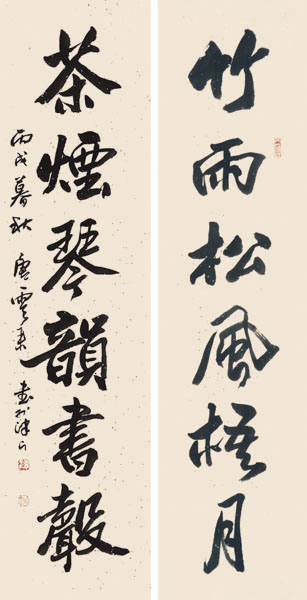 竹雨松風梧月
茶煙琴韻書聲
丙戌暮秋 唐雲來 書於津門